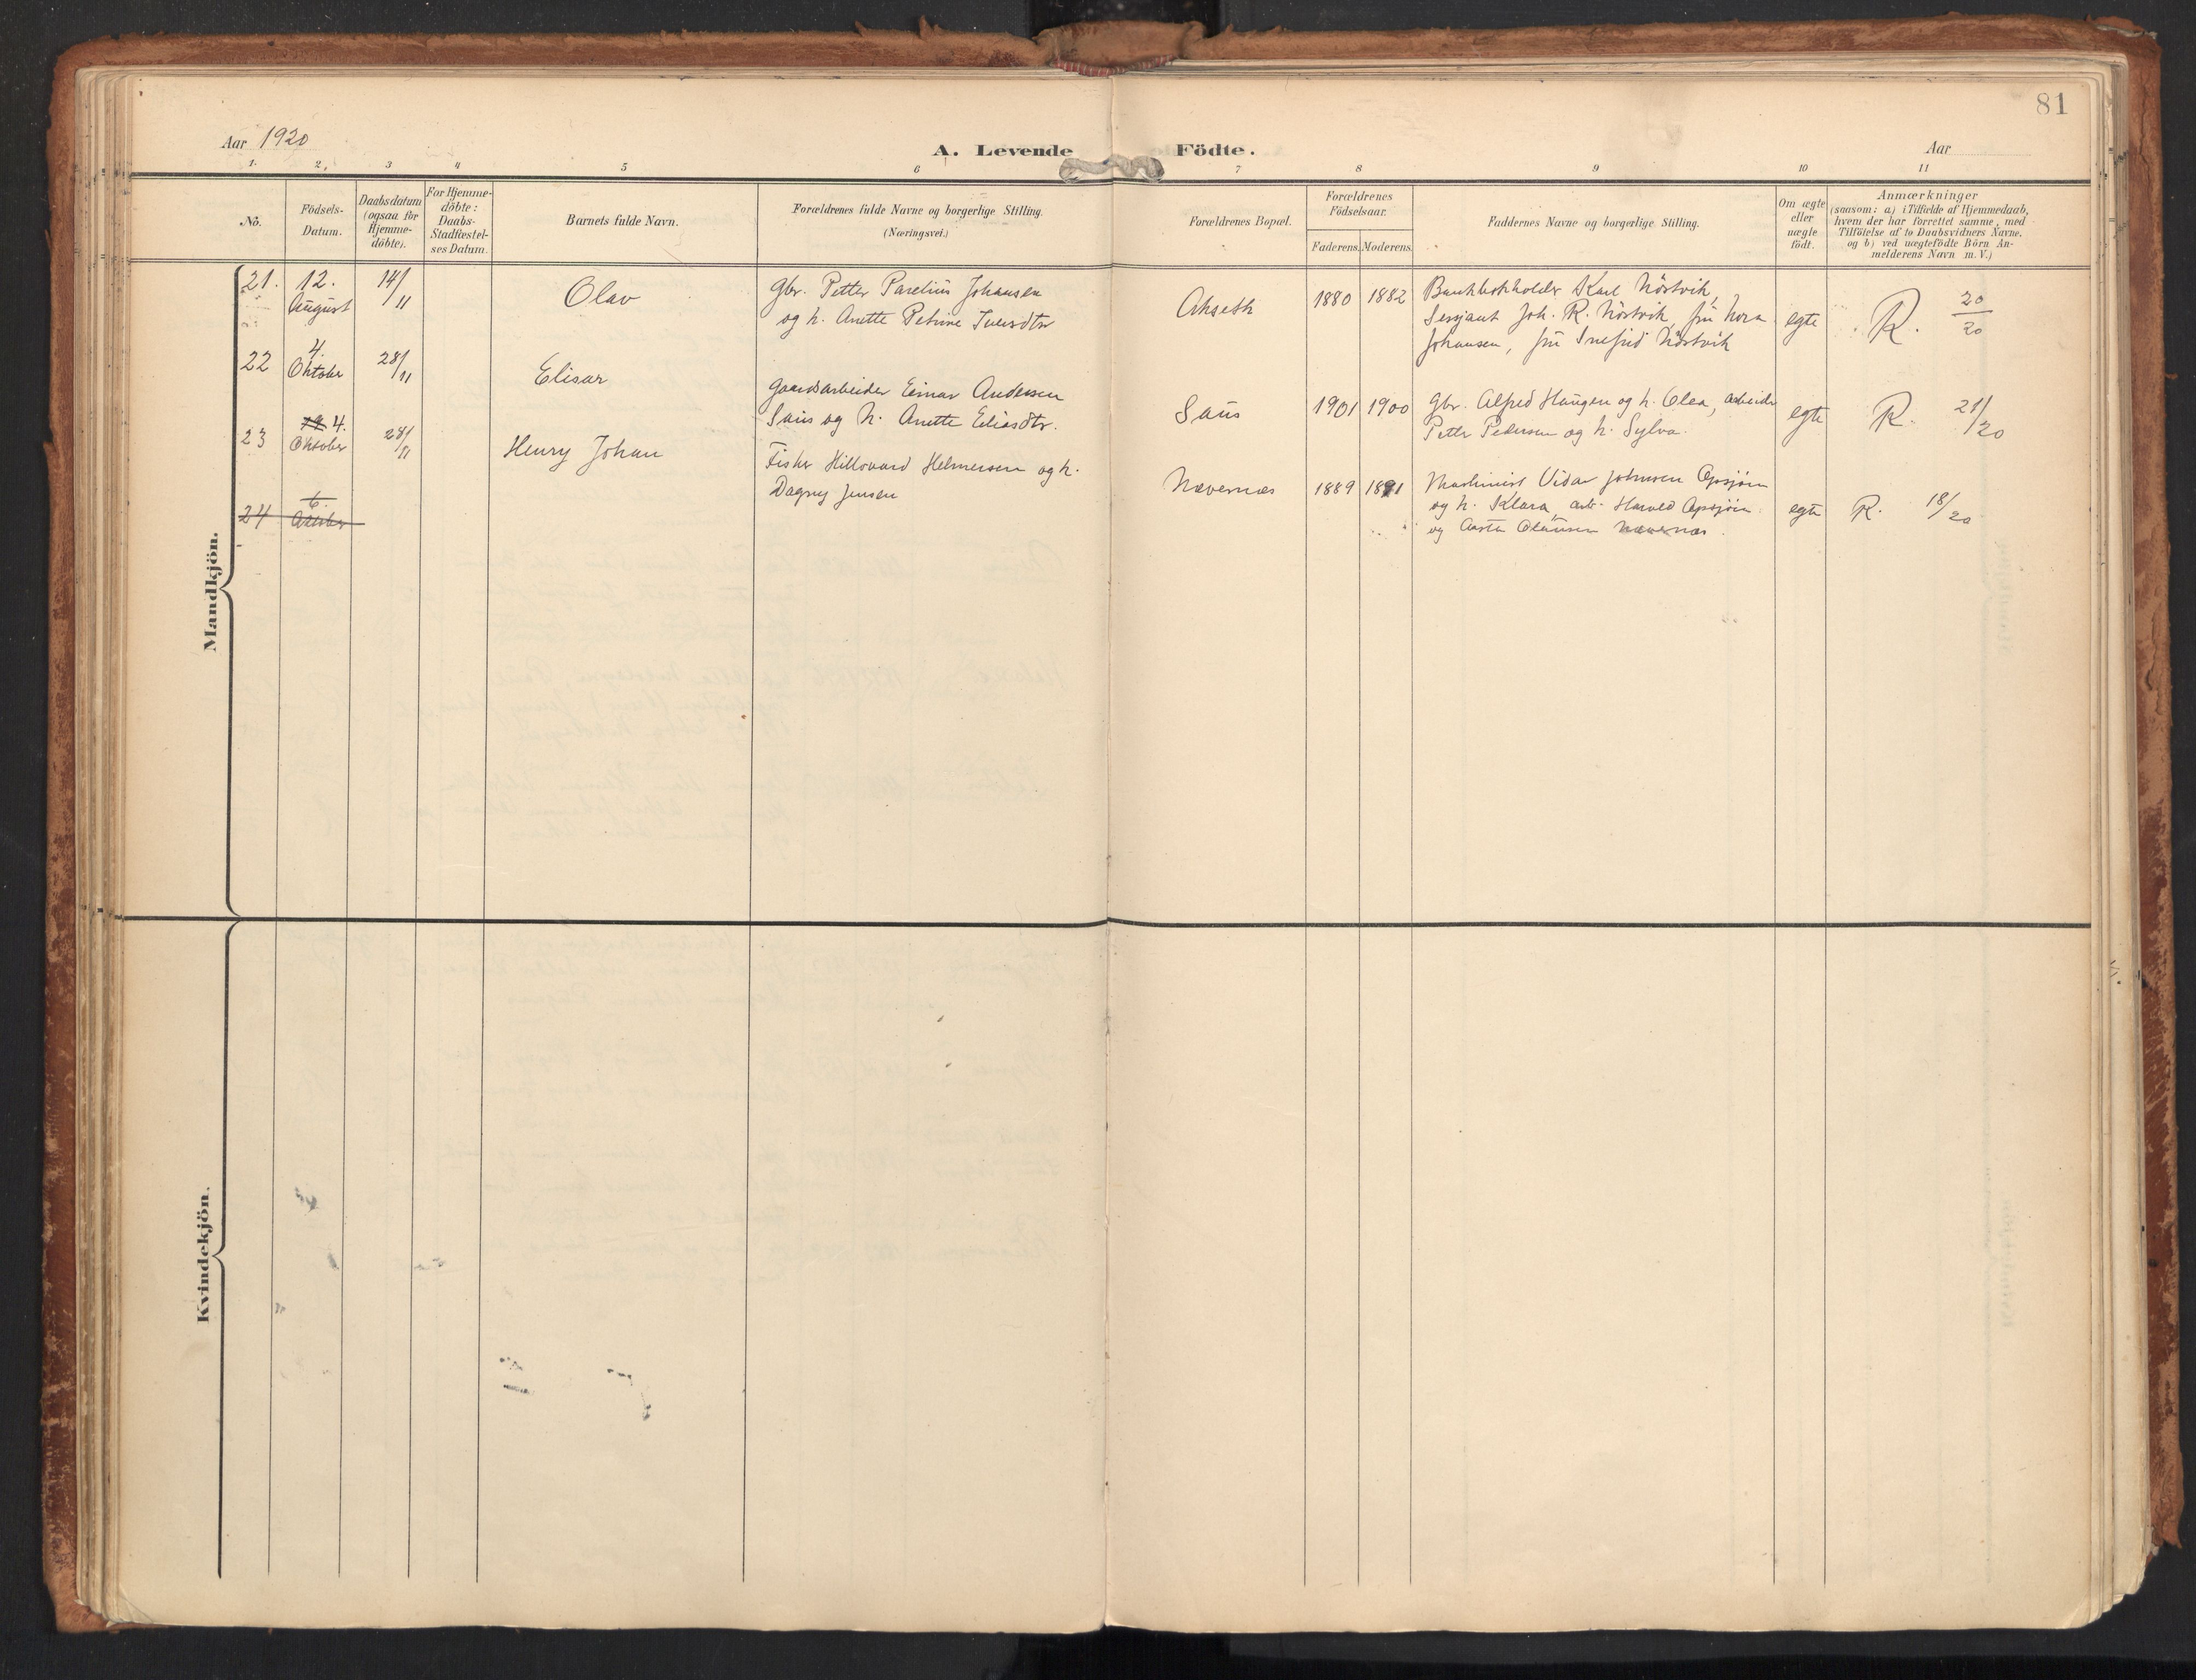 81
Aar 1920
A. Levende Födte.
Aar
1. 2, 3 4 5 6 7 8 9 10 11
No.
Födsels-
Datum.
Daabsdatum
(ogsaa for
Hjemme-
döbte).
For Hjemme-
döbte:
Daabs-
Stadfæstel-
ses Datum.
Barnets fulde Navn.
Forældrenes fulde Navne og borgerlige Stilling.
(Næringsvei.)
Forældrenes Bopæl.
Forældrenes
Födselsaar.
Faderens. Moderens.
Faddernes Navne og borgerlige Stilling.
Om ægte
eller
uægte
födt.
Anmærkninger
(saasom: a) i Tilfælde af Hjemmedaab,
hvem der har forrettet samme, med
Tilföielse af to Daabsvidners Navne.
og b) ved uægtefödte Börn An-
melderens Navn m. V.)
Mandkjön.
21. 12.
August
14/11
Olav
Gbr. Petter Parelius Johansen
og h. Anette Petrine Iversdtr
Akseth
1880 1882
Bankbokholder Karl Nöstvik,
Sersjant Joh. R. Nöstvik, frü Nora
Johansen, frü Nöstvik
egte
R. 20/20
22 4.
Oktober
28/11
Elisar
Gaardsarbeider Einar Andersen
Saüs og h. Anette Eliasdtr.
Saüs
1901 1900
Gbr. Alfred Haugen og h. Olea, arbeider
Petter Pedersen og h. Sylva.
egte
R. 21/20
23 4.
Oktober
28/11
Henry Johan
Fisker Hillovard Helmersen og h.
Dagny Jensen
Nævernes
1889 1891
Maskinist Vidar Johnsen
og h. Klara, arb. Harald
og Aasta Olaüsen Nævernæs.
egte
R. 18/20
24 6.
Oktober
Kvindekjön.